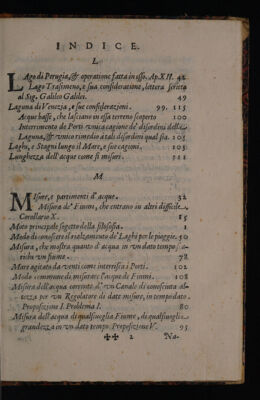 INDICE.
L
LAgo di Perugia, & operatione fatta in esso. Ap. XII. 42
Lago Trasimeno, e sua consideratione, lettera scritta
al Sig. Galileo Galilei. 49
Laguna di Venezia, e sue considerazioni. 99. 115
Acque basse, che lasciano in essa terreno scoperto 100
Interrimento de Porti vnica cagione de' disordini della
Laguna, & vnico rimedio à tali disordini qual sia. 105
Laghi, e Stagni lungo il Mare, e sue cagioni. 105
Lunghezza dell'acque come si misuri. 111
M
MIsure, e partimenti d'acque. 32
Misura de' Fiumi, che entrano in altri difficile.
Corollario X. 15
Moto principale sogetto della filosofia. 1
Modo di conoscere il rialzamento de' Laghi per le pioggie. 50
Misura, che mostra quanto d'acqua in vn dato tempo
richi vn fiume. 78
Mare agitato da venti come interrisca i Porti. 102
Modo commune di misurare l'acque di Fiumi. 108
Misura dell'acqua corrente d'vn Canale di conosciuta al-
tezza per vn Regolatore di date misure, in tempo dato
Proposizione I. Problema I. 80
Misura dell'acqua di qualsiuoglia Fiume, di qualsiuoglia
grandezza in vn dato tempo. Proposizione V. 95
✤✤ 2 Na-